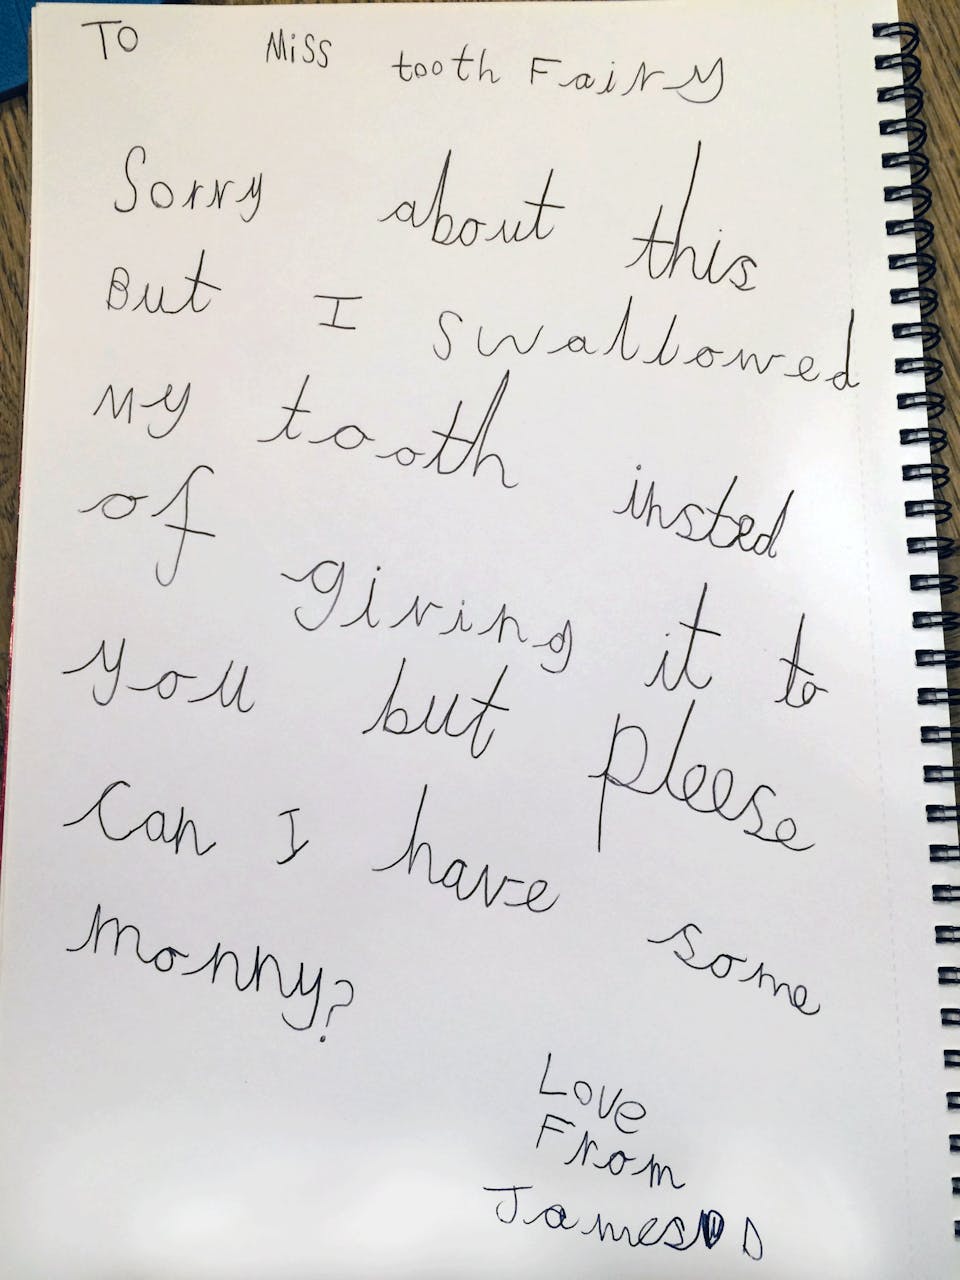 To Miss tooth Fairy
Sorry about this
But I swallowed
my tooth insted
of giving it to
you but pleese
can I have some
monny?
Love
From
James D